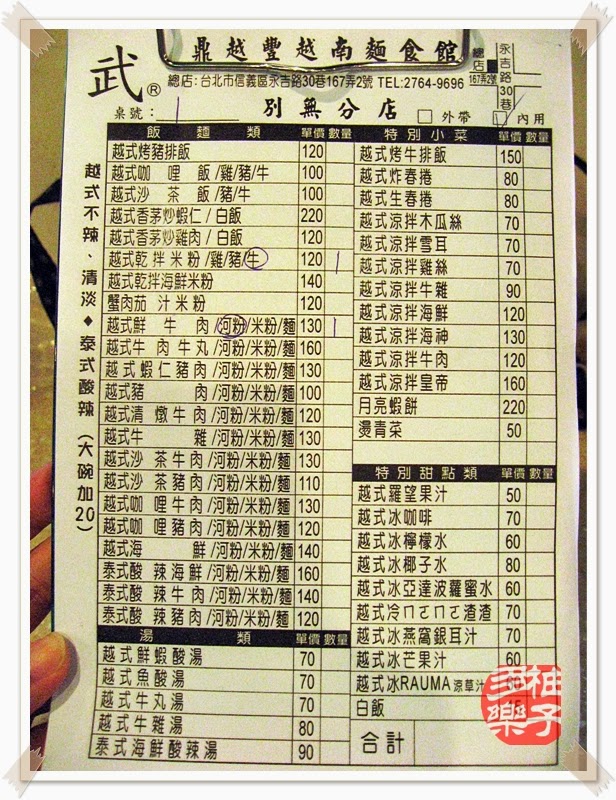 武®
鼎越豐越南麵食館
總店
167弄2號
永吉路30巷
總店:台北市信義區永吉路30巷167弄2號 TEL:2764-9696
桌號: 1
別無分店
外帶
內用
越式不辣、清淡◆泰式酸辣(大碗加20)
飯麵類 單價 數量
越式烤豬排飯 120
越式咖哩飯/雞/豬/牛 100
越式沙茶飯/豬/牛 100
越式香茅炒蝦仁/白飯 220
越式香茅炒雞肉/白飯 120
越式乾拌米粉/雞/豬/牛 120 1
越式乾拌海鮮米粉 140
蟹肉茄汁米粉 120
越式鮮牛肉/河粉/米粉/麵 130 1
越式牛肉牛丸/河粉/米粉/麵 160
越式蝦仁豬肉/河粉/米粉/麵 130
越式豬肉/河粉/米粉/麵 100
越式清燉牛肉/河粉/米粉/麵 120
越式牛雜/河粉/米粉/麵 130
越式沙茶牛肉/河粉/米粉/麵 130
越式沙茶豬肉/河粉/米粉/麵 110
越式咖哩牛肉/河粉/米粉/麵 130
越式咖哩豬肉/河粉/米粉/麵 120
越式海鮮/河粉/米粉/麵 140
泰式酸辣海鮮/河粉/米粉/麵 160
泰式酸辣牛肉/河粉/米粉/麵 140
泰式酸辣豬肉/河粉/米粉/麵 120
湯類 單價 數量
越式鮮蝦酸湯 70
越式魚酸湯 70
越式牛丸湯 70
越式牛雜湯 80
泰式海鮮酸辣湯 90
特別小菜 單價 數量
越式烤牛排飯 150
越式炸春捲 80
越式生春捲 80
越式涼拌木瓜絲 70
越式涼拌雪耳 70
越式涼拌雞絲 70
越式涼拌牛雜 90
越式涼拌海鮮 120
越式涼拌海神 130
越式涼拌牛肉 120
越式涼拌皇帝 160
月亮蝦餅 220
燙青菜 50
特別甜點類 單價 數量
越式羅望果汁 50
越式冰咖啡 70
越式冰檸檬水 60
越式冰椰子水 80
越式冰亞達波蘿蜜水 60
越式冷ㄇㄛㄇㄛ渣渣 70
越式冰燕窩銀耳汁 70
越式冰芒果汁 60
越式冰RAUMA涼草汁 60
白飯
合計